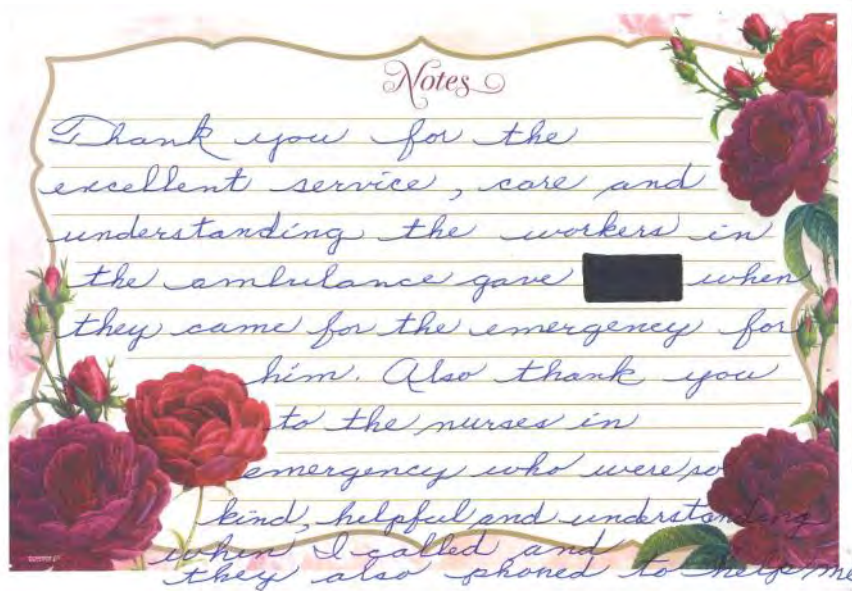 Notes
Thank you for the
excellent service, care and
understanding the workers in
the ambulance gave when
they came for the emergency for
him. Also thank you
to the nurses in
emergency who were so
kind, helpful and understanding
when I called and
they also phoned to help me